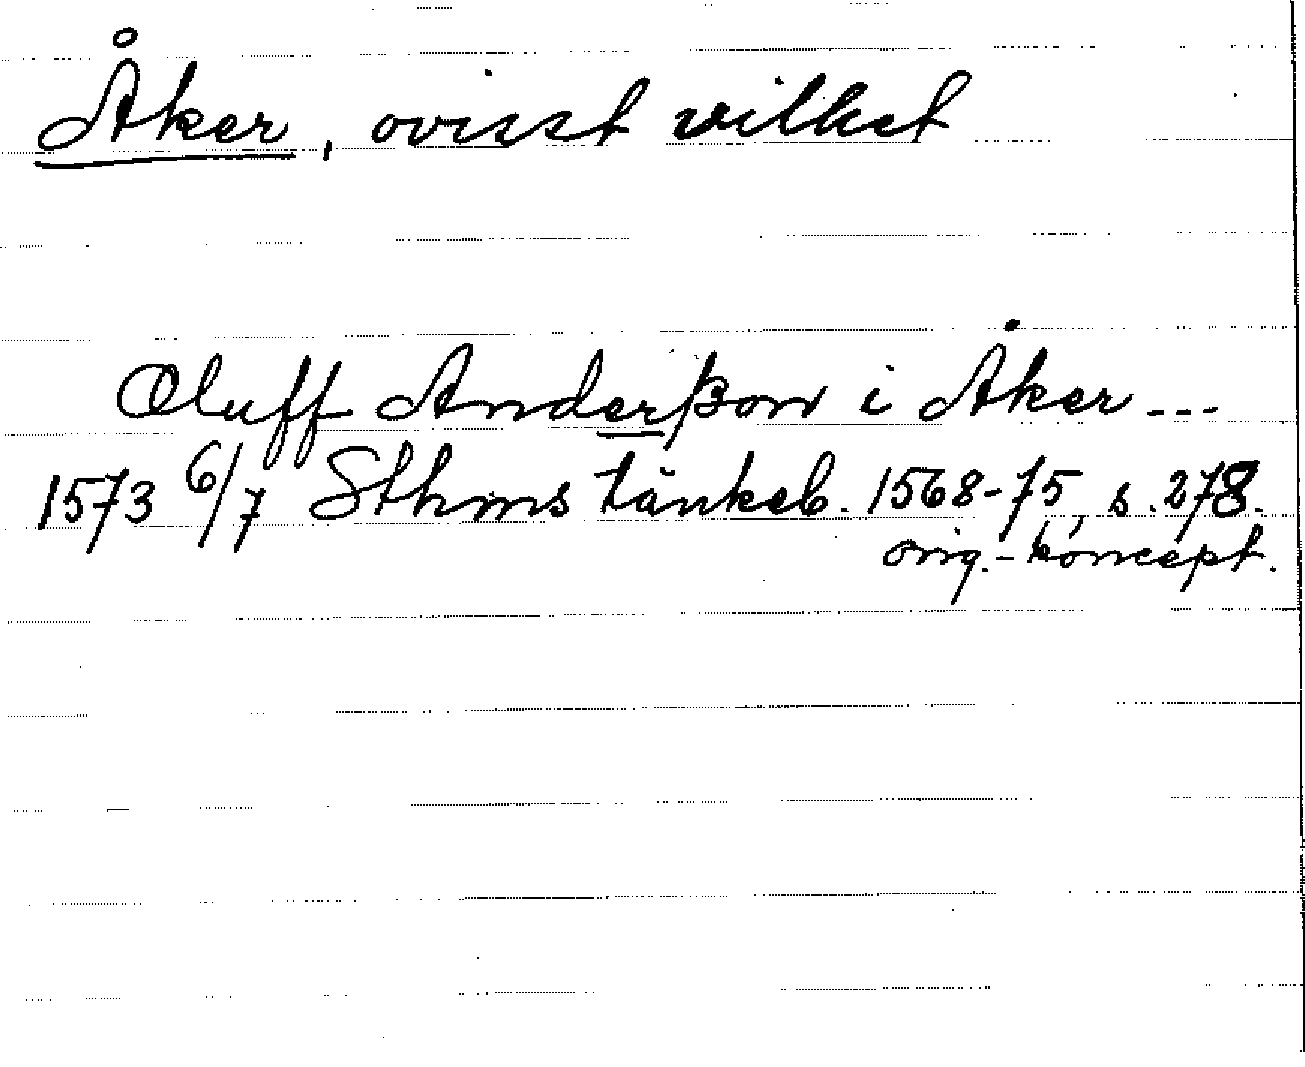 Åker, ovisst vilket
Oluff Anderßon i Åker ---
1573 6/7 Sthms tänkeb. 1568-75, s. 278.
orig.-koncept.